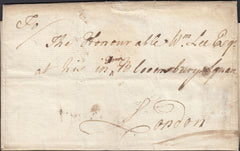 To/
The Honourable Wm Lee Esqr
at his in Bloomsbury Square
London